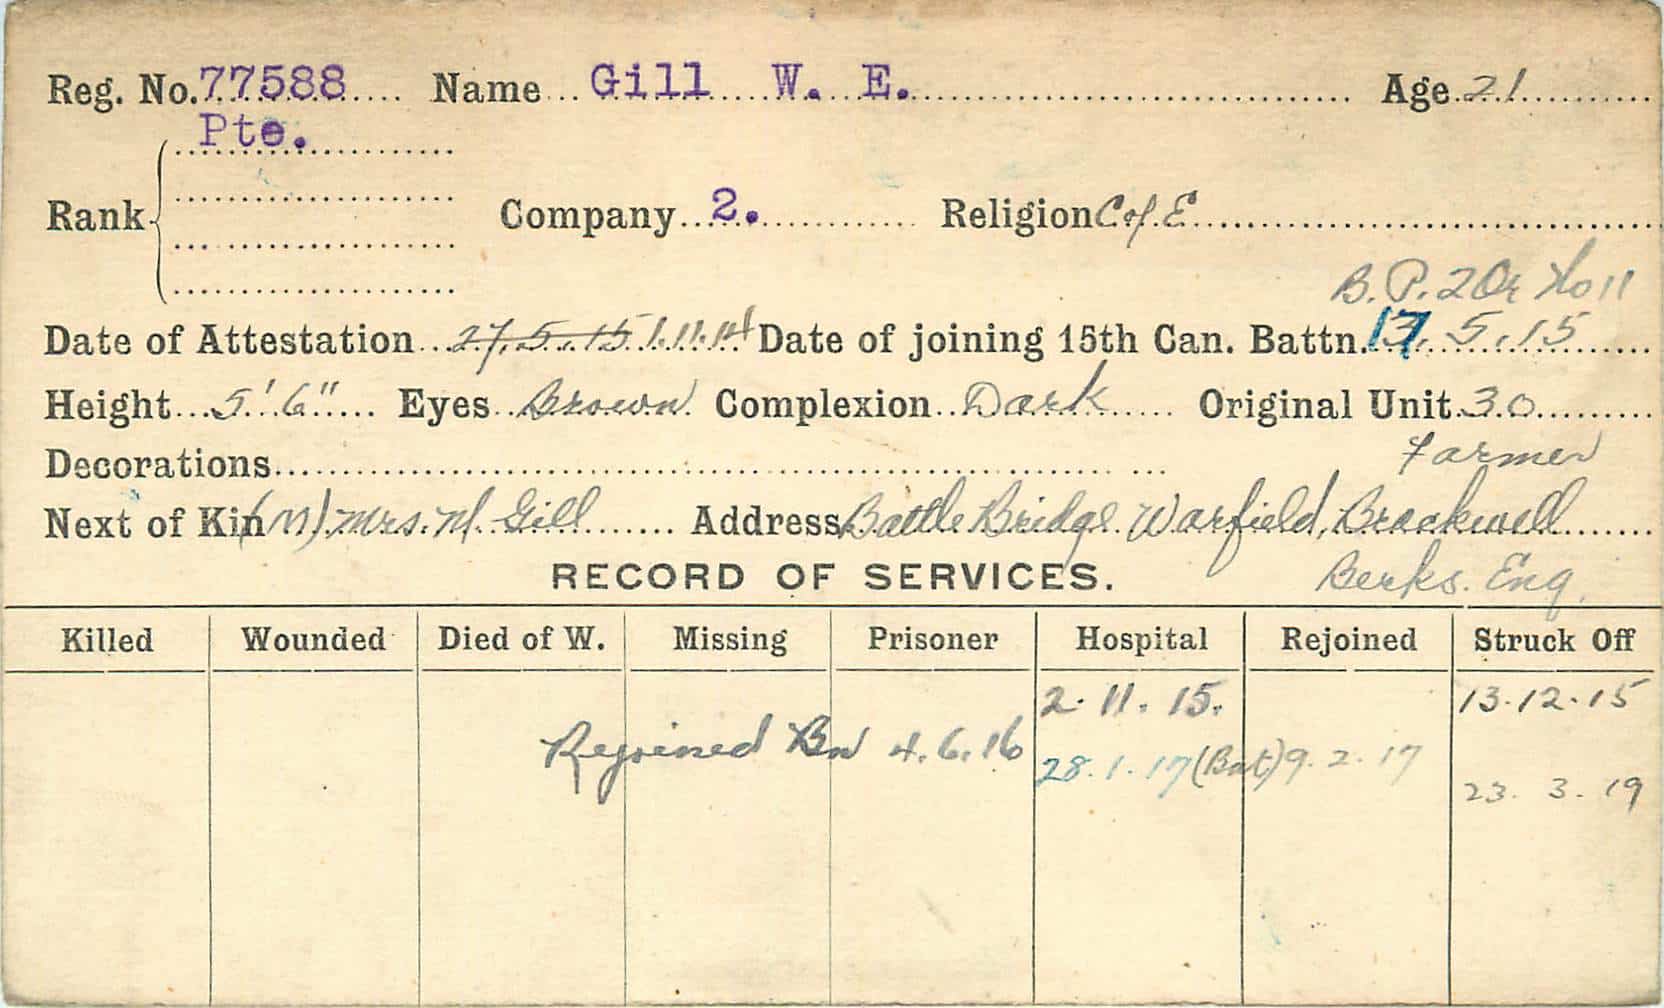 Reg. No. 77588 Name Gill W. E. Age 21
Pte.
Rank Company 2. Religion C of E
B.P. 2 Or No 11
Date of Attestation 27.5.15 1.11.14 Date of joining 15th Can. Battn. 17.5.15
Height 5'6" Eyes Brown Complexion Dark Original Unit 30
Decorations Farmer
Next of Kin (M) Mrs. M. Gill Address Battle Bridge Warfield, Bracknell
RECORD OF SERVICES. Berks. Eng.
Killed Wounded Died of W. Missing Prisoner Hospital Rejoined Struck Off
2.11.15. 13.12.15
Rejoined Bn 4.6.16 28.1.17 (Bat) 9.2.17
23.3.19